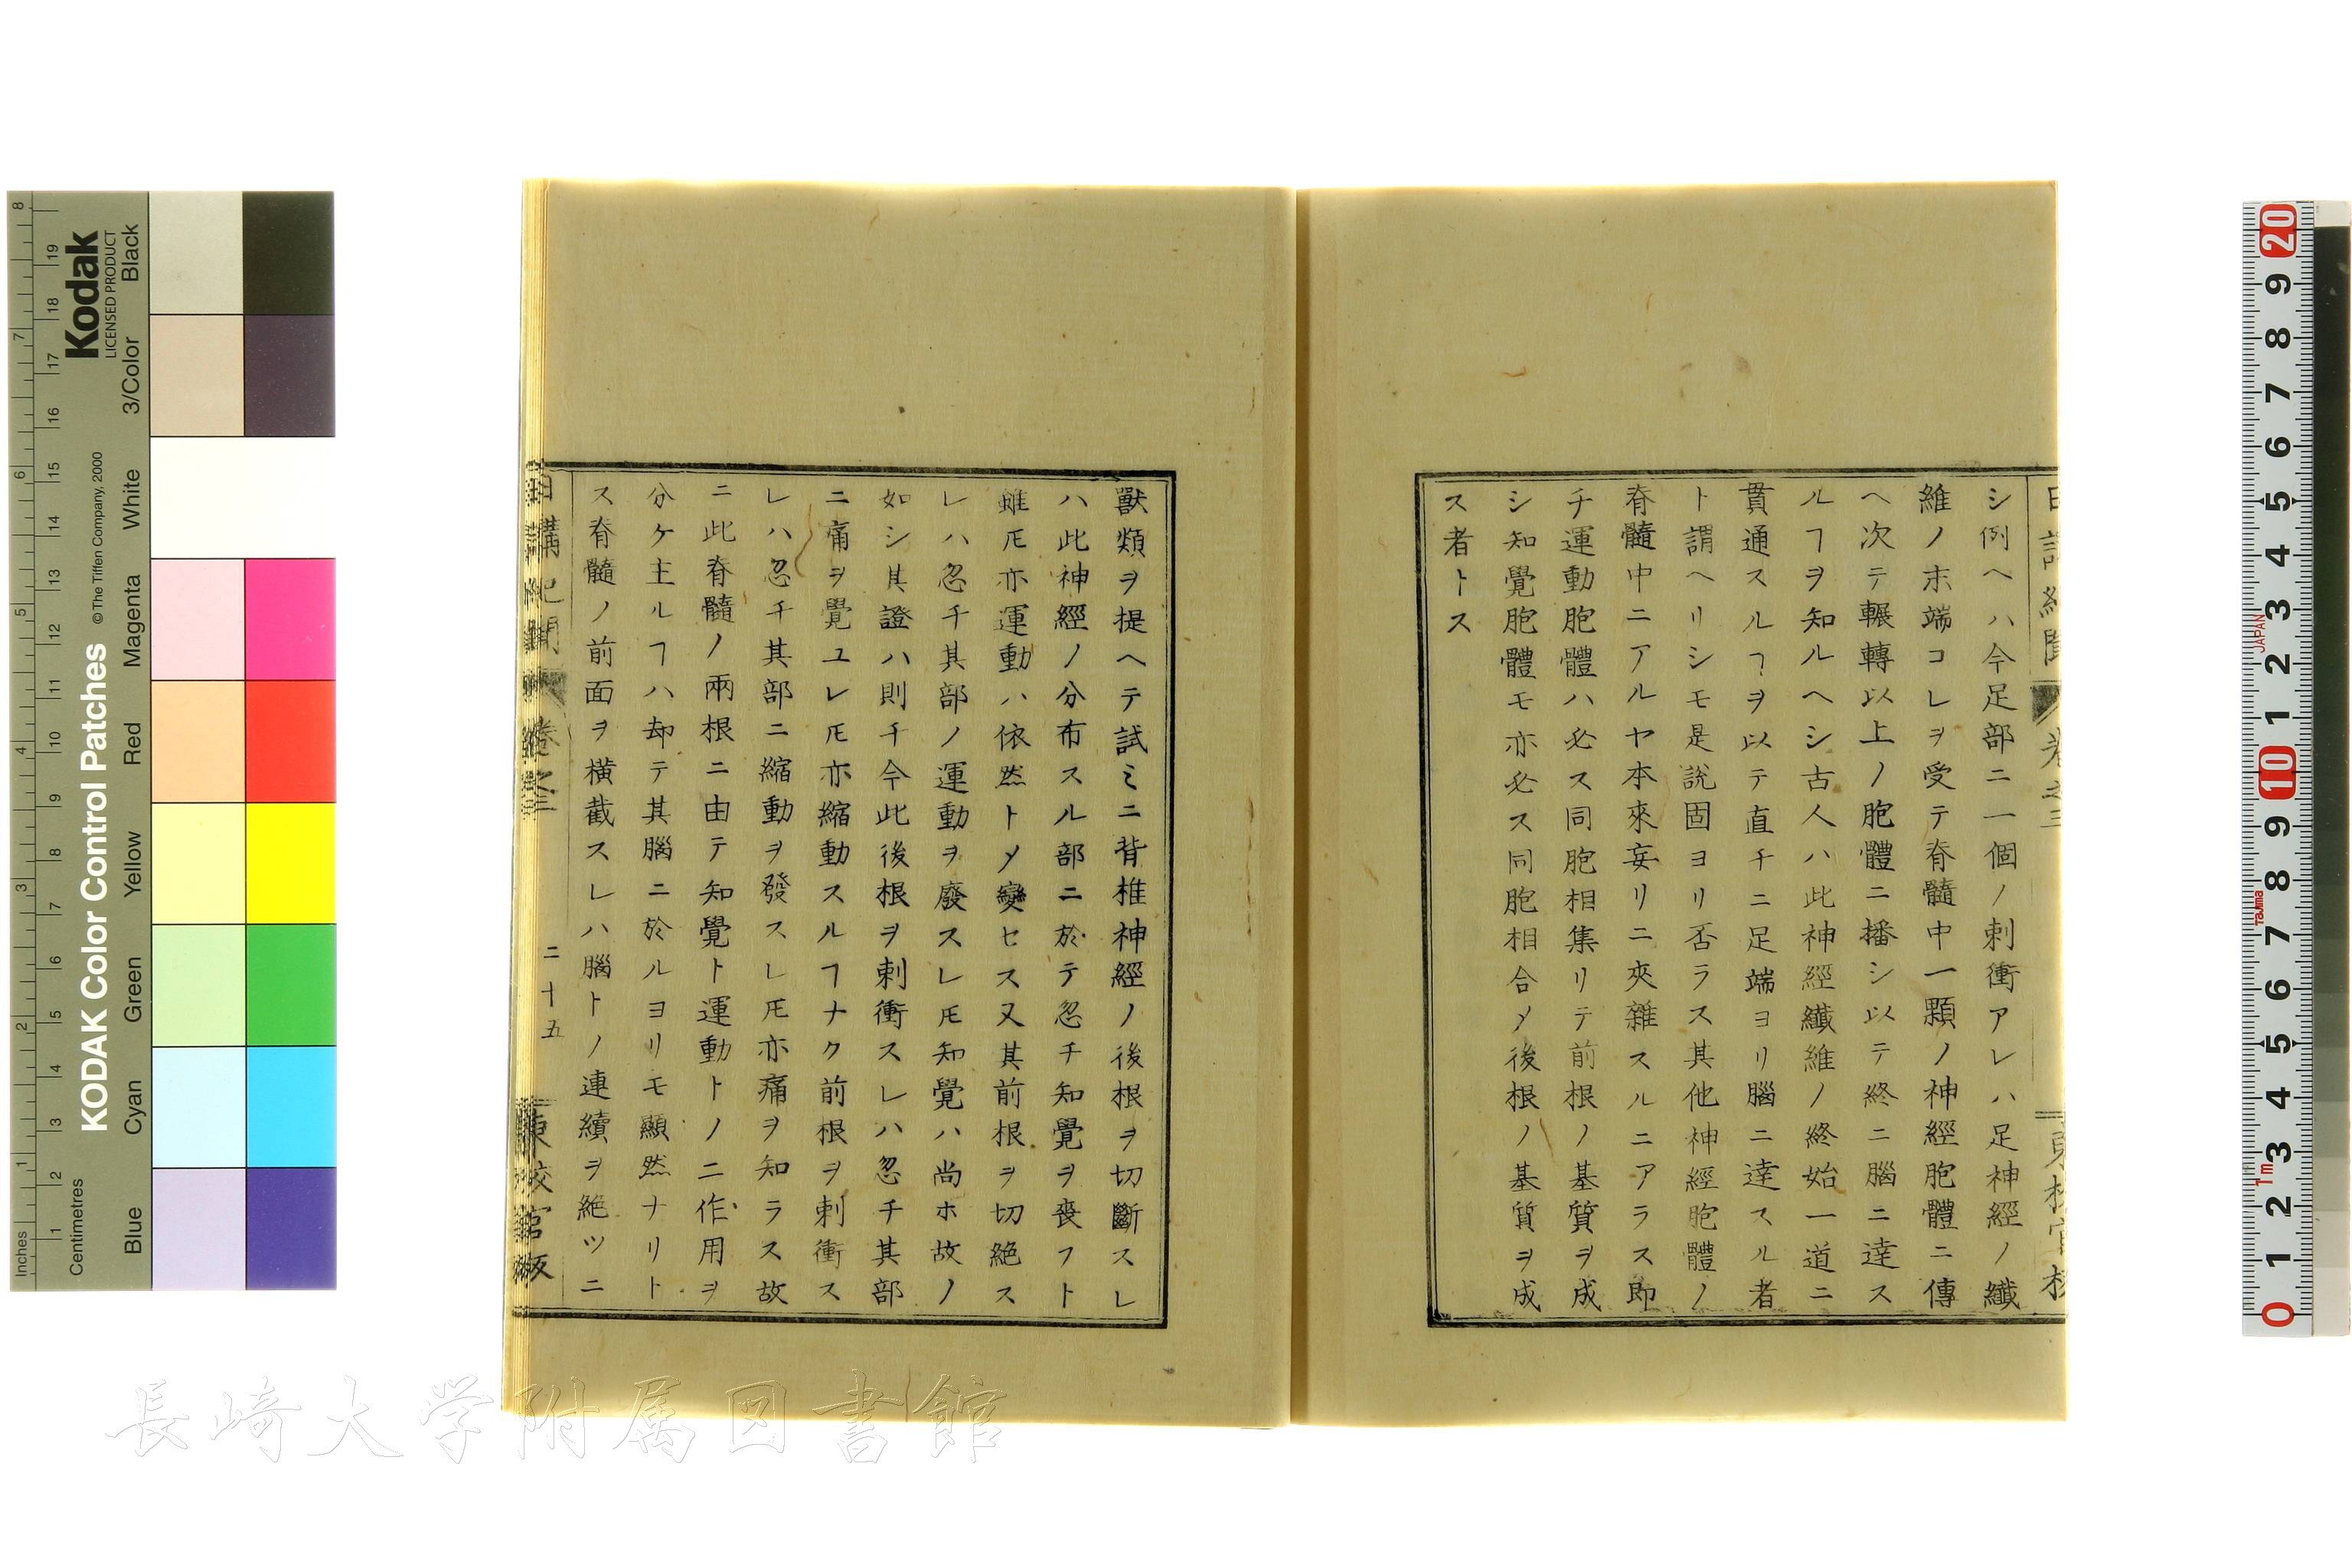 シ例ヘハ今足部ニ一個ノ刺衝アレハ足神經ノ纎
維ノ末端コレヲ受テ脊髓中一顆ノ神經胞體ニ傳
ヘ次テ輾轉以上ノ胞體ニ播シ以テ終ニ腦ニ達ス
ルヿヲ知ルヘシ古人ハ此神經纎維ノ終始一道ニ
貫通スルヿヲ以テ直チニ足端ヨリ腦ニ達スル者
ト謂ヘリシモ是説固ヨリ否ラス其他神經胞體ノ
脊髓中ニアルヤ本來妄リニ夾雜スルニアラス即
チ運動胞體ハ必ス同胞相集リテ前根ノ基質ヲ成
シ知覺胞體モ亦必ス同胞相合〆後根ノ基質ヲ成
ス者トス
獸類ヲ提ヘテ試ミニ背椎神經ノ後根ヲ切斷スレ
ハ此神經ノ分布スル部ニ於テ忽チ知覺ヲ喪フト
雖𪜈亦運動ハ依然ト〆變セス又其前根ヲ切絶ス
レハ忽チ其部ノ運動ヲ廢スレ𪜈知覺ハ尚ホ故ノ
如シ其證ハ則チ今此後根ヲ刺衝スレハ忽チ其部
ニ痛ヲ覺ユレ𪜈亦縮動スルヿナク前根ヲ刺衝ス
レハ忽チ其部ニ縮動ヲ發スレ𪜈亦痛ヲ知ラス故
ニ此脊髓ノ兩根ニ由テ知覺ト運動トノ二作用ヲ
分ケ主ルヿハ却テ其腦ニ於ルヨリモ顯然ナリト
ス脊髓ノ前面ヲ横截スレハ腦トノ連續ヲ絶ツニ
日講記聞 卷之三 二十五
長崎大学附属図書館
KODAK Color Control Patches
©The Tiffen Company, 2000
Kodak
LICENSED PRODUCT
Inches 1 2 3 4 5 6 7 8
Centimetres 1 2 3 4 5 6 7 8 9 10 11 12 13 14 15 16 17 18 19
Blue Cyan Green Yellow Red Magenta White 3/Color Black
0 1 2 3 4 5 6 7 8 9 10 1 2 3 4 5 6 7 8 9 20
1m Tajima JAPAN